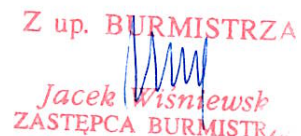 Z up. BURMISTRZA
Jacek Wiśniewsk
ZASTĘPCA BURMISTR